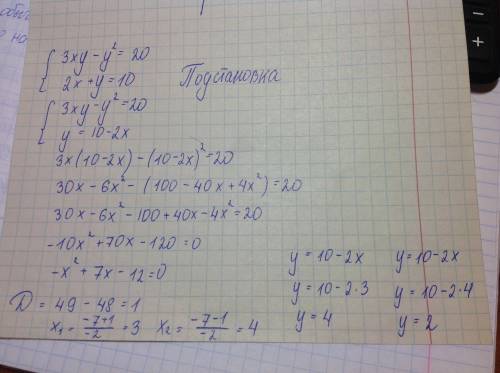 { 3xy - y² = 20
{ 2x + y = 10
Подстановка
{ 3xy - y² = 20
{ y = 10 - 2x
3x(10 - 2x) - (10 - 2x)² = 20
30x - 6x² - (100 - 40x + 4x²) = 20
30x - 6x² - 100 + 40x - 4x² = 20
-10x² + 70x - 120 = 0
-x² + 7x - 12 = 0
D = 49 - 48 = 1
x₁ = (-7+1)/(-2) = 3 x₂ = (-7-1)/(-2) = 4
y = 10 - 2x
y = 10 - 2·3
y = 4
y = 10 - 2x
y = 10 - 2·4
y = 2